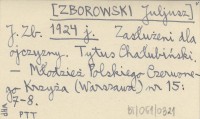 [ZBOROWSKI Juljusz]
J. Zb. 1924 j. Zasłużeni dla
ojczyzny. Tytus Chałubiński.
- Młodzież Polskiego Czerwone-
go Krzyża (Warszawa) nr 15:
7-8.
PTT
BJ/OSA/0321